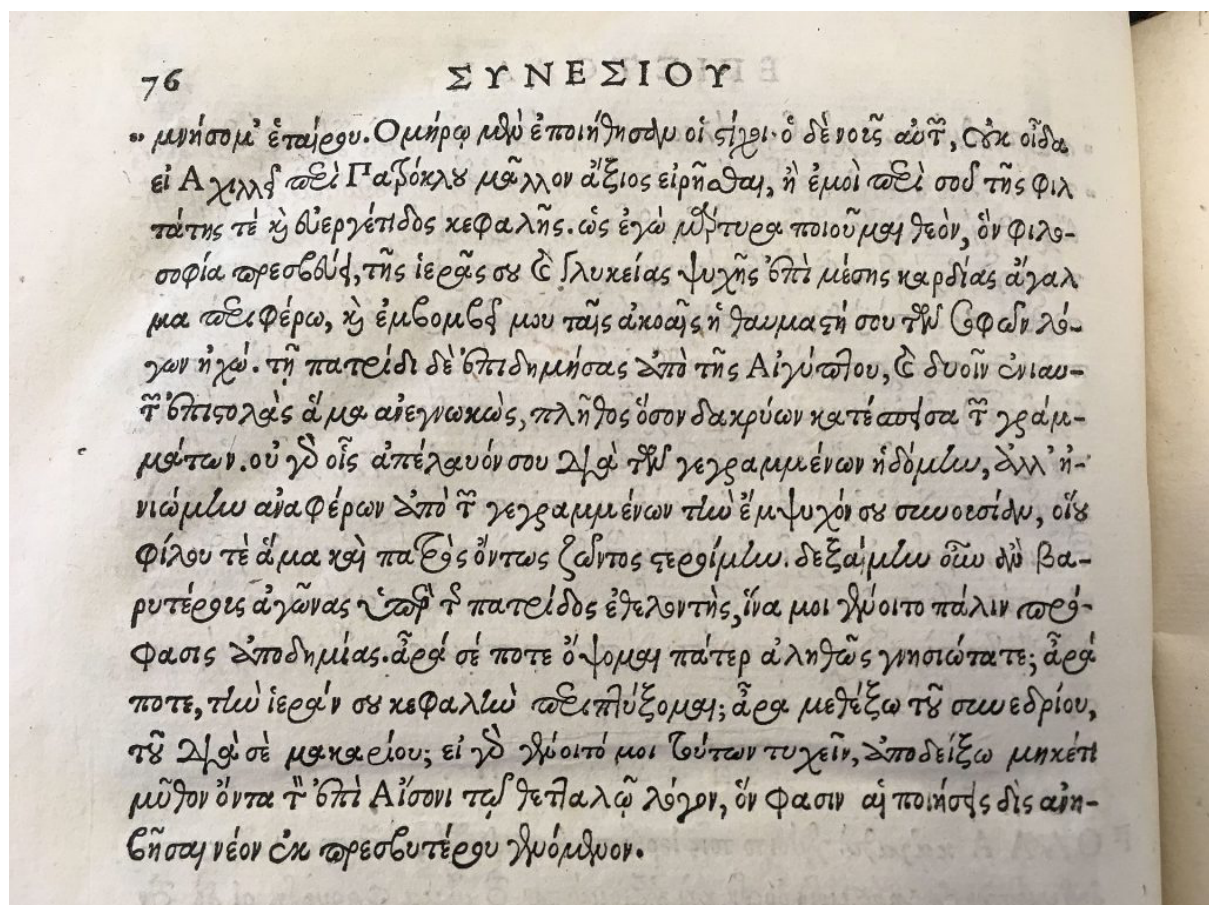 76 ΣΥΝΕΣΙΟΥ
„ μνήσομ' ἑταίρου. Ομήρῳ μὲν ἐποιήθησαν οἱ στίχοι· ὁ δὲ νοῦς αὐτῶν, οὐκ οἶδα
εἰ Αχιλλεῖ περὶ Πατρόκλου μᾶλλον ἄξιος εἰρῆσθαι, ἢ ἐμοὶ περὶ σοῦ τῆς φιλ
τάτης τὲ καὶ εὐεργέτιδος κεφαλῆς. ὡς ἐγὼ μάρτυρα ποιοῦμαι θεὸν, ὃν φιλο-
σοφία πρεσβεύει, τῆς ἱερᾶς σου καὶ γλυκείας ψυχῆς ἐπὶ μέσης καρδίας ἄγαλ
μα περιφέρω, καὶ ἐμβομβεῖ μου ταῖς ἀκοαῖς ἡ θαυμαστή σου τῶν σοφῶν λό-
γων ἠχώ. τῇ πατρίδι δὲ ἐπιδημήσας ἀπὸ τῆς Αἰγύπτου, καὶ δυοῖν ἐνιαυ-
τῶν ἐπιστολὰς ἅμα ἀνεγνωκὼς, πλῆθος ὅσον δακρύων κατέσπεισα τῶν γραμ-
μάτων. οὐ γὰρ οἷς ἀπέλαυόν σου διὰ τῶν γεγραμμένων ἡδόμην, ἀλλ' ἠ-
νιώμην ἀναφέρων ἀπὸ τῶν γεγραμμένων τὴν ἔμψυχόν σου συνουσίαν, οἵου
φίλου τὲ ἅμα καὶ πατρὸς ὄντως ζῶντος στεροίμην. δεξαίμην οὖν ἂν βα-
ρυτέρους ἀγῶνας ὑπὲρ τῆς πατρίδος ἐθελοντὴς, ἵνα μοι γένοιτο πάλιν πρό-
φασις ἀποδημίας. ἆρά σέ ποτε ὄψομαι πάτερ ἀληθῶς γνησιώτατε; ἆρά
ποτε, τὴν ἱεράν σου κεφαλὴν περιπτύξομαι; ἆρα μεθέξω τοῦ συνεδρίου,
τοῦ διὰ σὲ μακαρίου; εἰ γὰρ γένοιτό μοι τούτων τυχεῖν, ἀποδείξω μηκέτι
μῦθον ὄντα τὸν ἐπὶ Αἴσονι τῷ θετταλῷ λόγον, ὅν φασιν αἱ ποιήσεις δὶς ἀνη-
βῆσαι νέον ἐκ πρεσβυτέρου γενόμενον.